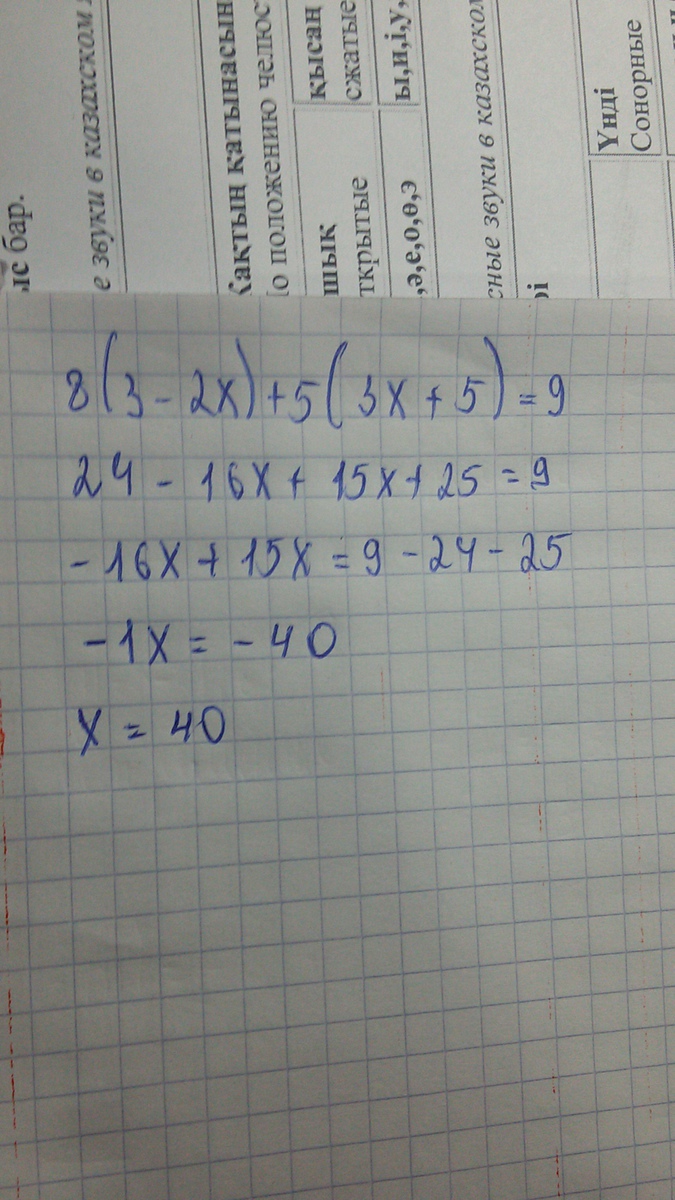 ыс бар.
е звуки в казахском
Жақтың қатынасын
По положению челюс
шық
ткрытые
қысаң
сжатые
,ә,е,о,ө,э
ы,и,і,у,
сные звуки в казахском
рі
Үнді
Сонорные
8(3 - 2x) + 5(3x + 5) = 9
24 - 16x + 15x + 25 = 9
- 16x + 15x = 9 - 24 - 25
- 1x = - 40
x = 40